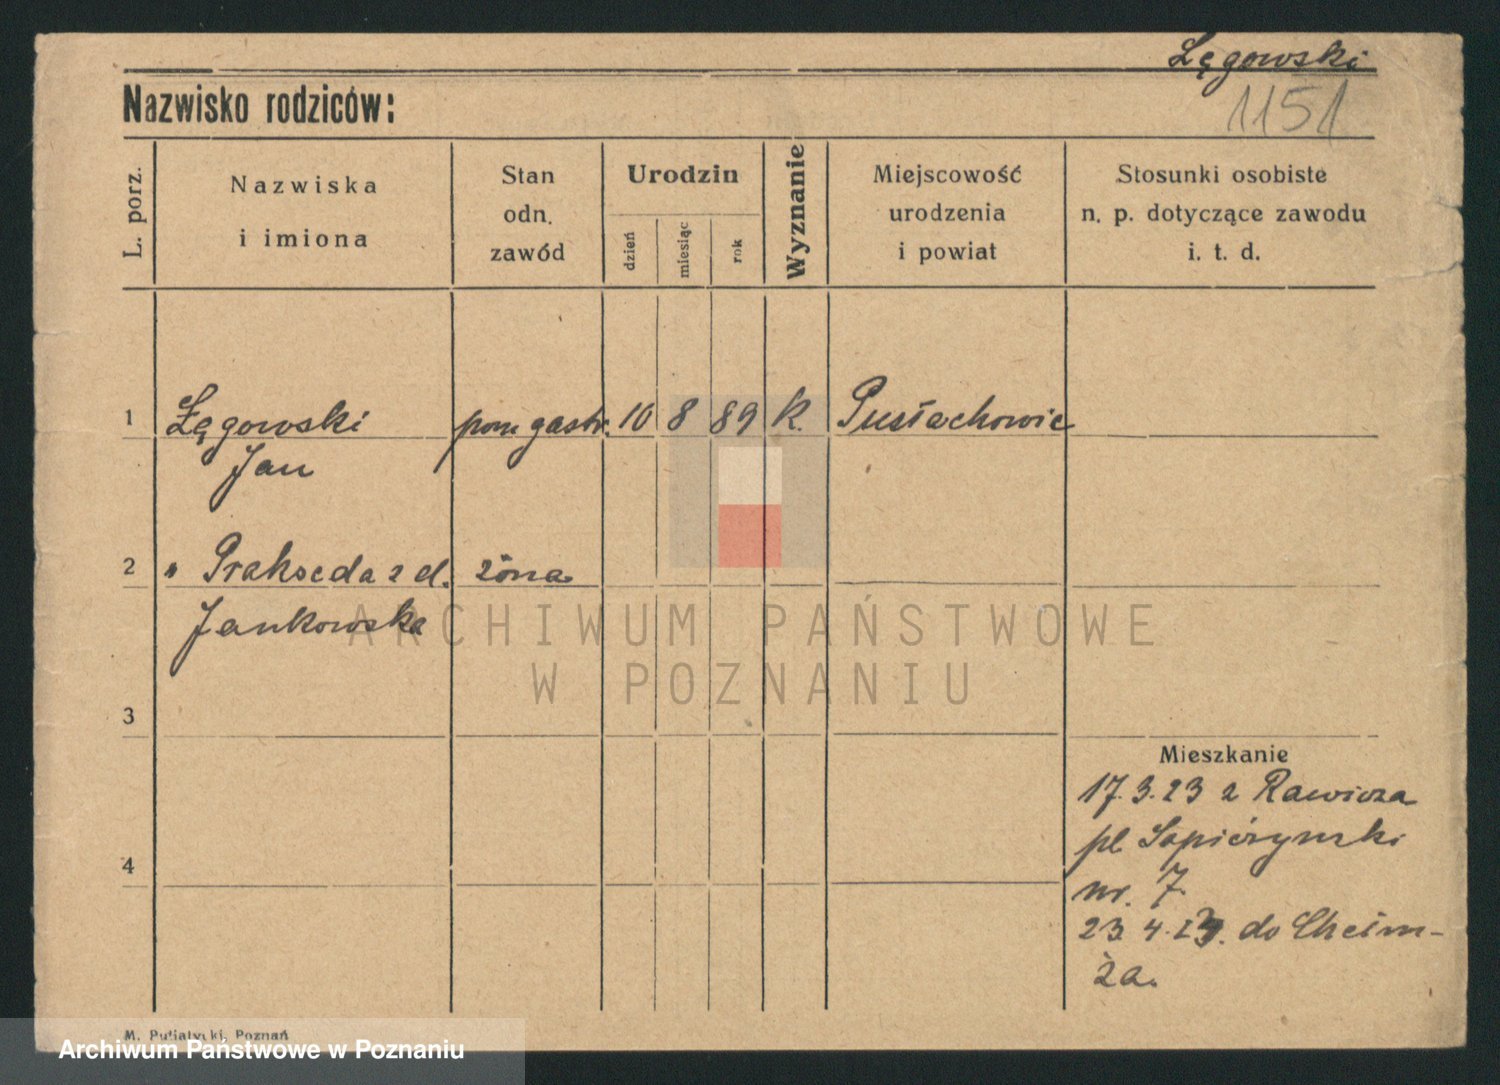 Łęgowski
1151
Nazwisko rodziców:
L. porz.
Nazwiska
i imiona
Stan
odn.
zawód
Urodzin
dzień
miesiąc
rok
Wyznanie
Miejscowość
urodzenia
i powiat
Stosunki osobiste
n. p. dotyczące zawodu
i. t. d.
1 Łęgowski pom. gastr. 10 8 89 k. Pustachowie
Jan
2 " Prakseda z d. żona
Jankowska
ARCHIWUM PAŃSTWOWE
W POZNANIU
3
Mieszkanie
17.3.23 z Rawicza
pl. Sapieżyński
4
nr. 7.
23.4.23. do Chełm-
ża.
M. Putiatycki, Poznań
Archiwum Państwowe w Poznaniu